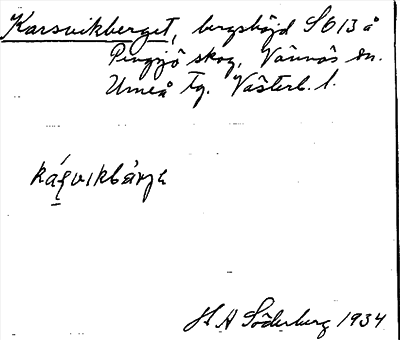 Karsvikberget, bergshöjd SO 13 å
Pengsjö skog, Vännäs sn.
Umeå tg. Västerb. l.
káʂvikbärjə
H A Söderberg 1934